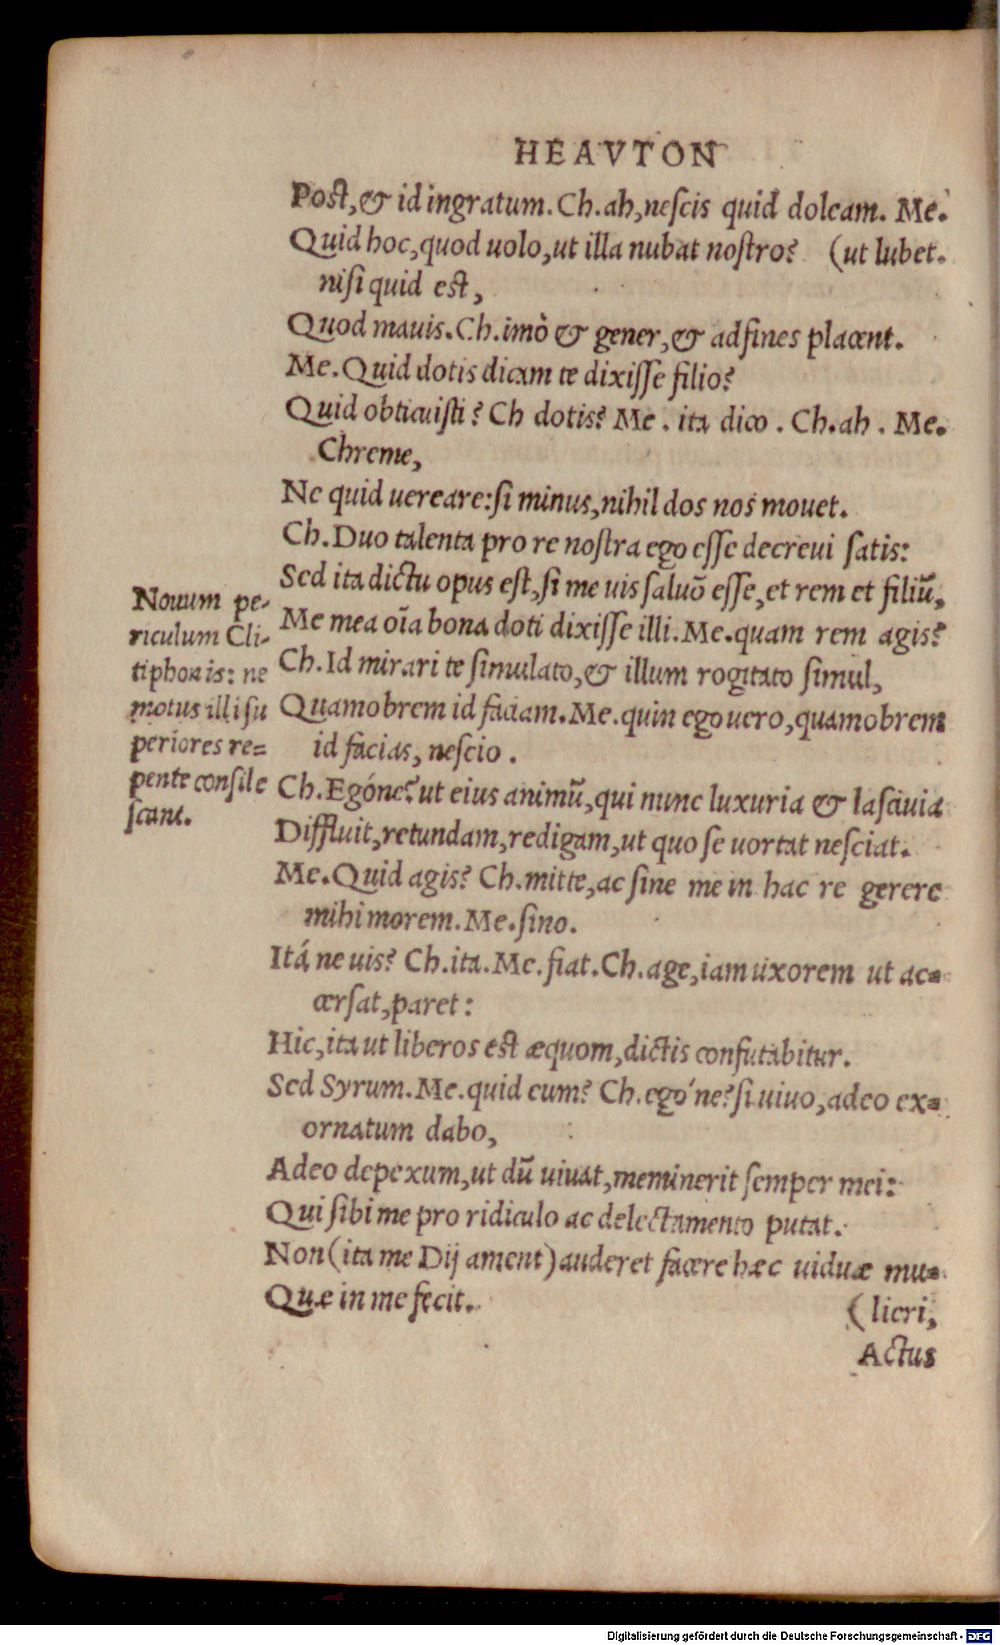 HEAVTON
Post,& id ingratum. Ch. ah, neſcis quid doleam. Me.
Quid hoc, quod uolo, ut illa nubat noſtro? (ut lubet.
niſi quid est,
Quod mauis. Ch. imò & gener,& adfines placent.
Me. Quid dotis dicam te dixiſſe filio?
Quid obticuiſti? Ch dotis? Me. ita dico. Ch. ah. Me.
Chreme,
Ne quid uereare: ſi minus, nihil dos nos mouet.
Ch. Duo talenta pro re noſtra ego eſſe decreui ſatis:
Sed ita dictu opus eſt, ſi me uis ſaluõ eſſe, et rem et filiũ,
Me mea oĩa bona doti dixiſſe illi. Me. quam rem agis?
Ch. Id mirari te ſimulato,& illum rogitato ſimul,
Quamobrem id faciam. Me. quin ego uero, quamobrem
id facias, neſcio.
Ch. Egóne? ut eius animũ, qui nunc luxuria & laſciuia
Diffluit, retundam, redigam, ut quo ſe uortat neſciat.
Me. Quid agis? Ch. mitte, ac ſine me in hac re gerere
mihi morem. Me. ſino.
Itá ne uis? Ch. ita. Me. fiat. Ch. age, iam uxorem ut ac=
cerſat, paret:
Hic, ita ut liberos est æquom, dictis confutabitur.
Sed Syrum. Me. quid eum? Ch. egó ne? ſi uiuo, adeo ex=
ornatum dabo,
Adeo depexum, ut dũ uiuat, meminerit ſemper mei:
Qui ſibi me pro ridiculo ac delectamento putat.
Non (ita me Dij ament) auderet facere hæc uiduæ mu=
Quæ in me fecit. (lieri,
Actus
Nouum pe-
riculum Cli-
tiphonis: ne
motus illi ſu
periores re=
pente conſile
ſcant.
Digitalisierung gefördert durch die Deutsche Forschungsgemeinschaft - DFG